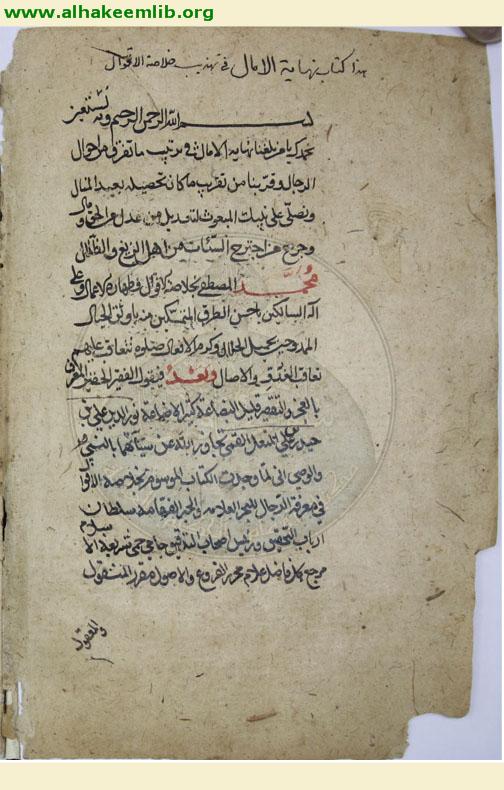 www.alhakeemlib.org
هذا كتاب نهاية الامال في ترتيب خلاصة الاقوال
بسم الله الرحمن الرحيم وبه نستعين
نحمدك يا من بلغنا نهاية الامال في ترتيب ما تفرق من احوال
الرجال وقربنا من تقريب ما كان تحصيله بعيد المنال
ونصلي على نبيك المبعوث لتعديل من عدل عن الحق ومال
وجرح من اجترح السيئات من اهل الزيغ والضلال
محمد المصطفى خلاصة الاقوال في طهارة الاعمال وعلى
آله السالكين باحسن الطرق المتمسكين منه باوثق الحبال
الممدوحين بجميل الخلال وكرم الافعال صلوة تتعاقب عليهم
تعاقب الغدو والاصال وبعد فيقول الفقير الحقير المعترف
بالعجز والتقصير قليل البضاعة كثير الاضاعة نور الدين علي بن
حيدر علي القمي تجاوز الله عن سيئاتهما بالنبي
والوصي اني لما وجدت الكتاب الموسوم بخلاصة الاقوال
في معرفة الرجال للبحر العلامة والحبر الفهامة سلطان
ارباب التحقيق ورئيس اصحاب التدقيق حامي حمى شريعة الاسلام
مرجع كل فاضل علام محرر الفروع والاصول مقرر المنقول
والمعقول